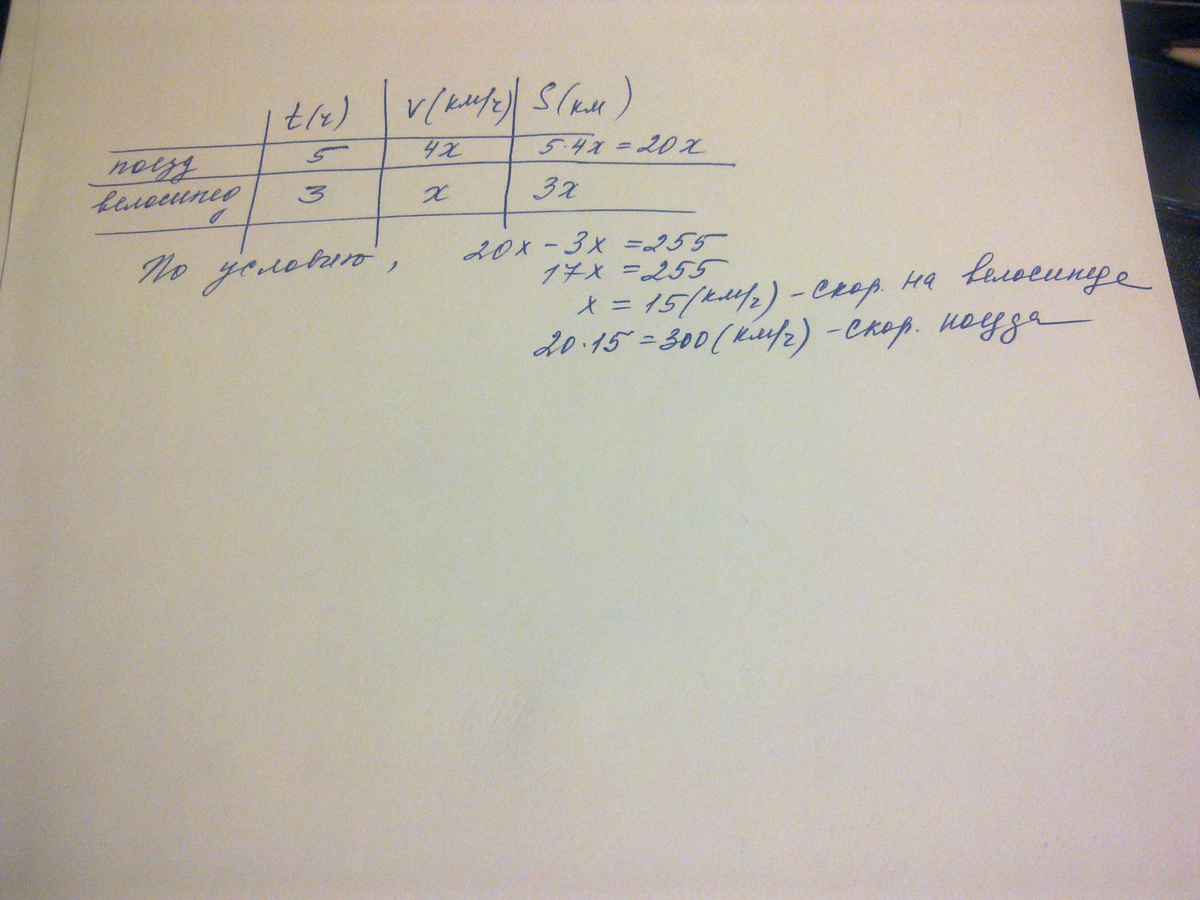 t(ч) v(км/ч) S(км)
поезд 5 4x 5·4x = 20x
велосипед 3 x 3x
По условию, 20x - 3x = 255
17x = 255
x = 15 (км/ч) - скор. на велосипеде
20·15 = 300 (км/ч) - скор. поезда